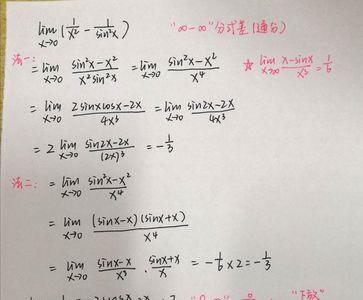 lim x→0 (1/x² - 1/sin²x) "∞-∞" 分式差(通分)
法一: = lim x→0 (sin²x-x²)/(x²sin²x) = lim x→0 (sin²x-x²)/x⁴ ★ lim x→∞ (x-sinx)/x³ = 1/6
= lim x→0 (2sinxcosx-2x)/4x³ = lim x→0 (sin2x-2x)/4x³
= 2 lim x→0 (sin2x-2x)/(2x)³ = -1/3
法二: = lim x→0 (sin²x-x²)/x⁴
= lim x→0 (sinx-x)(sinx+x)/x⁴
= lim x→0 (sinx-x)/x³ · (sinx+x)/x = -1/6 × 2 = -1/3